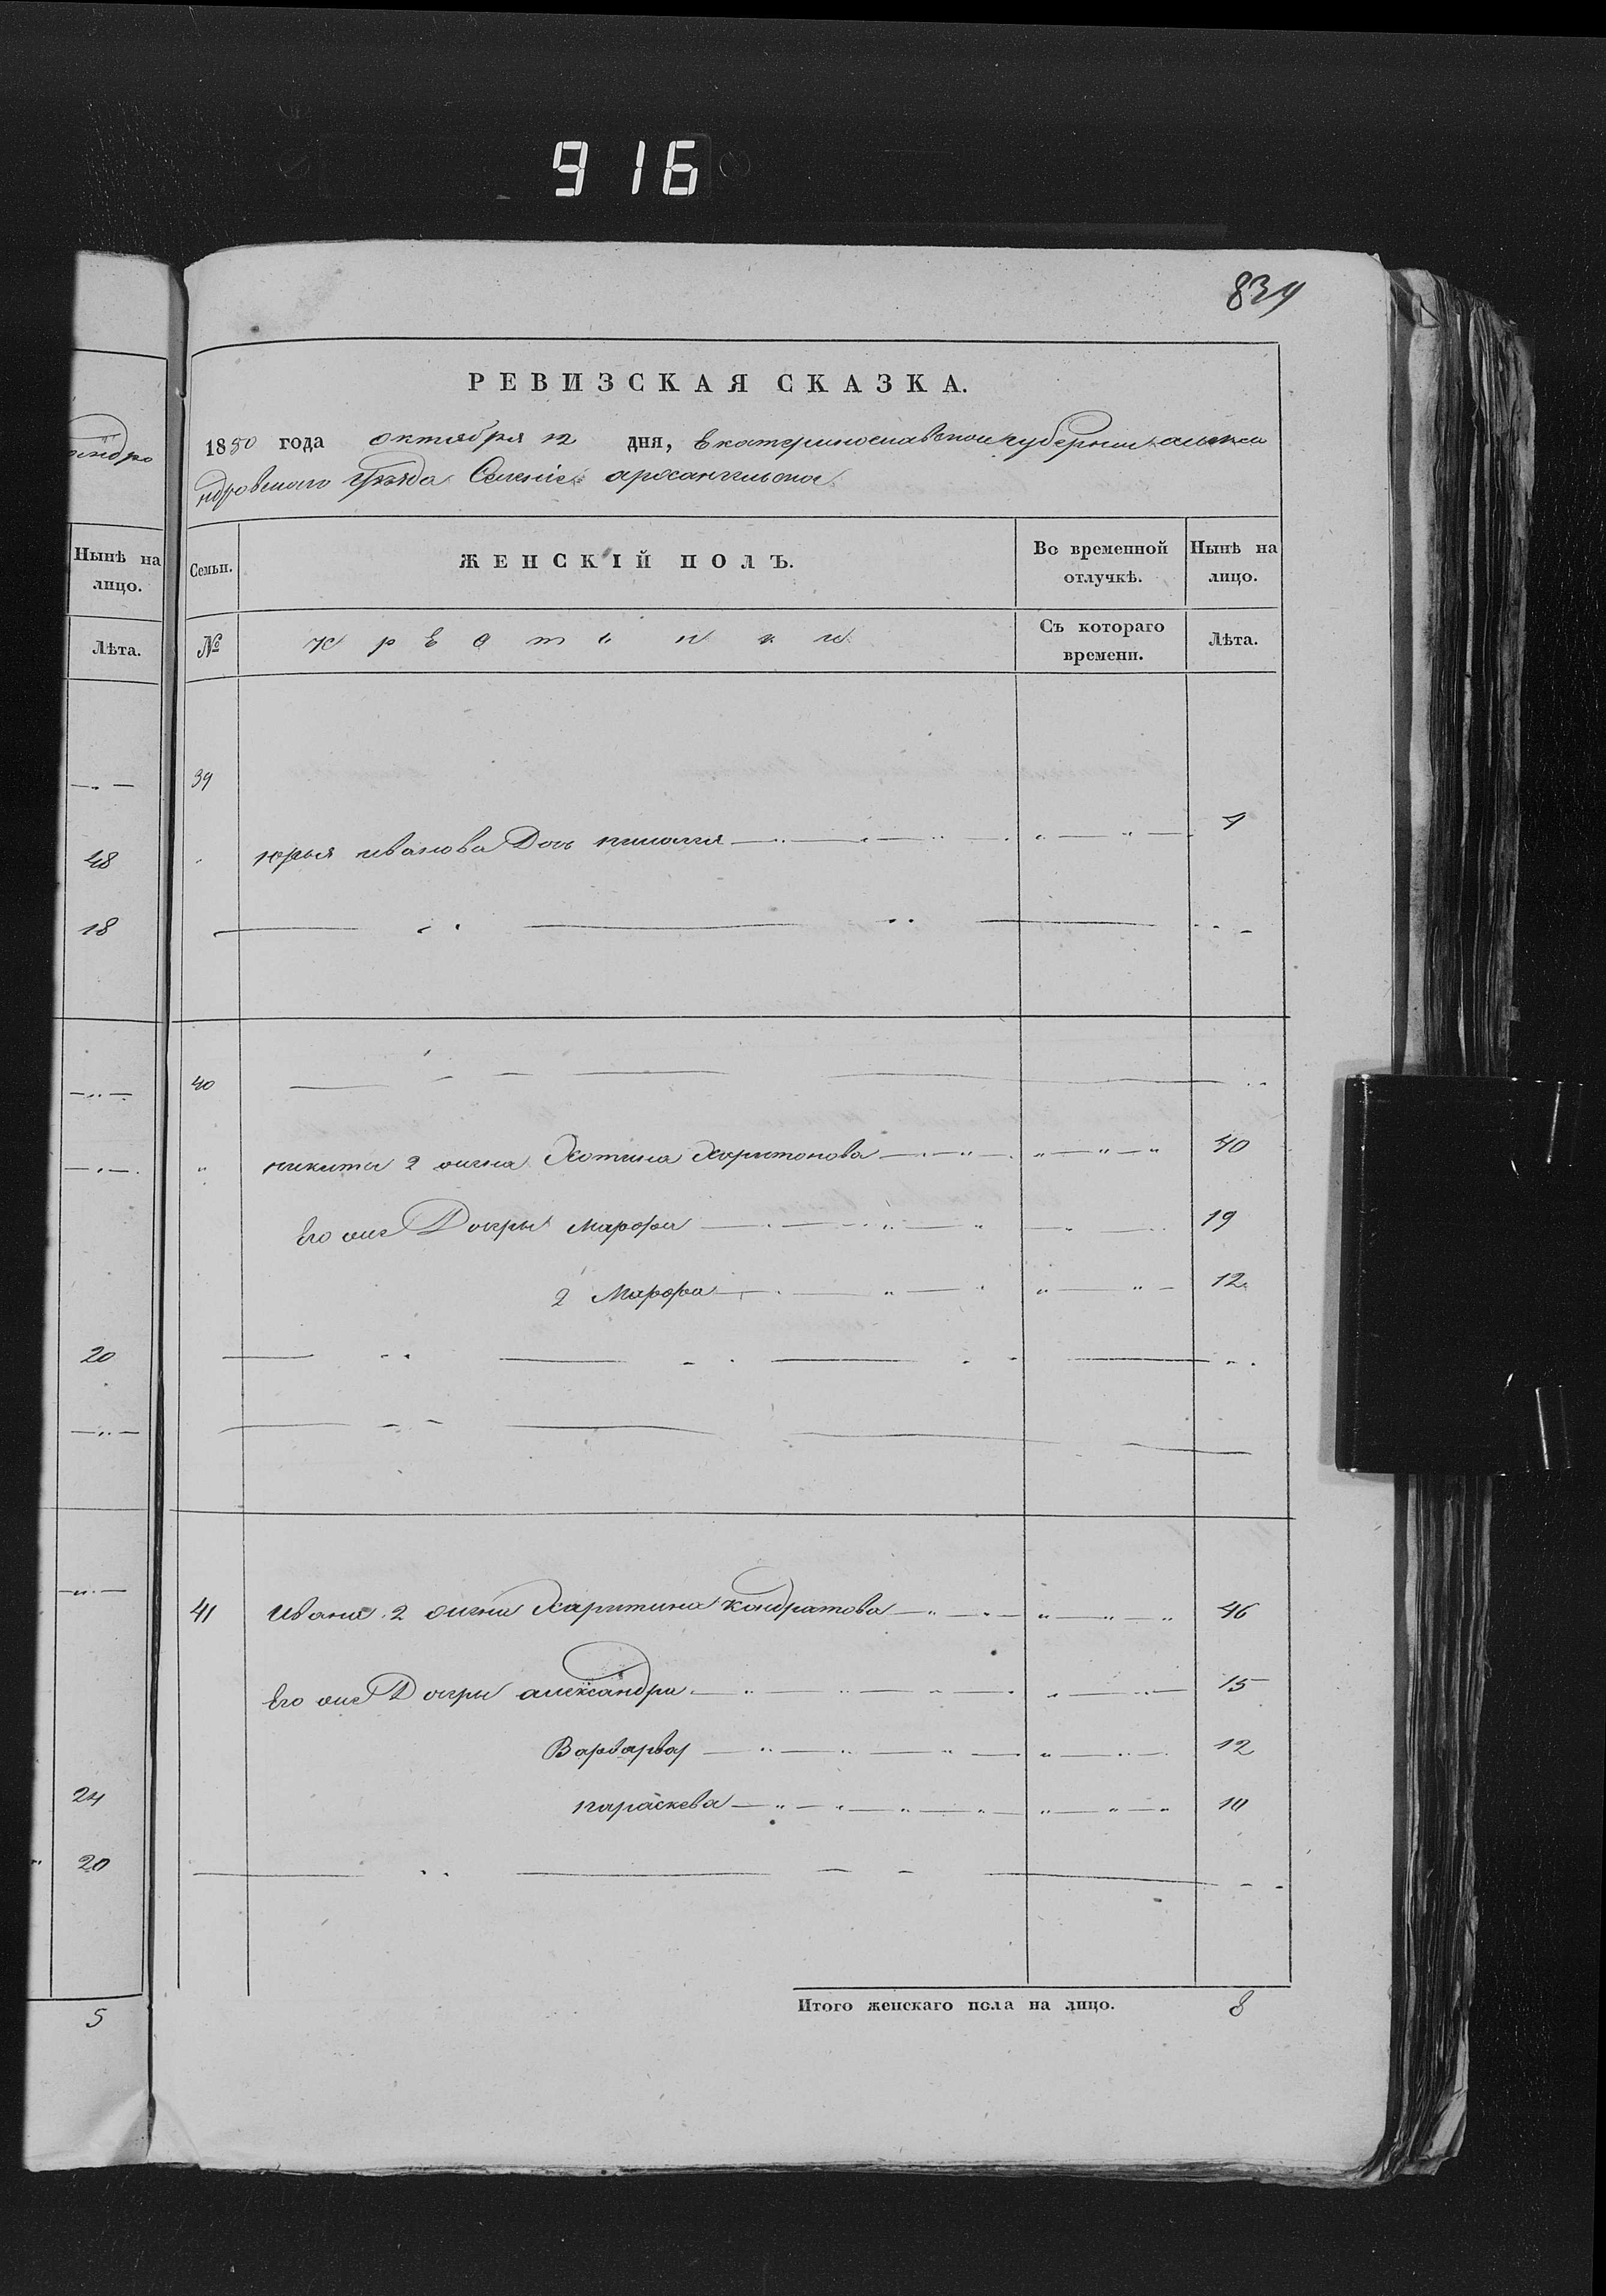 916
839
РЕВИЗСКАЯ СКАЗКА.
1850 года октября 12 дня, Екатеринославской губернии алекса
ндровского уѣзда Селенiе архангельское
Нынѣ на лицо.
Лѣта.
Семьи. ЖЕНСКІЙ ПОЛЪ. Во временной отлучкѣ. Нынѣ на лицо.
№ Съ котораго времени. Лѣта.
39
48 Юрья иванова Дочь
18
40
никиты 2 жена Хотина Харитонова 40
Его же Дочри Марфа 19
2 Марфа 12
20
41 Ивана 2 жена Харитина кондратова 46
Его же Дочри александра 15
Варварва 12
24 параскева 10
20
Итого женскаго пола на лицо. 8
5